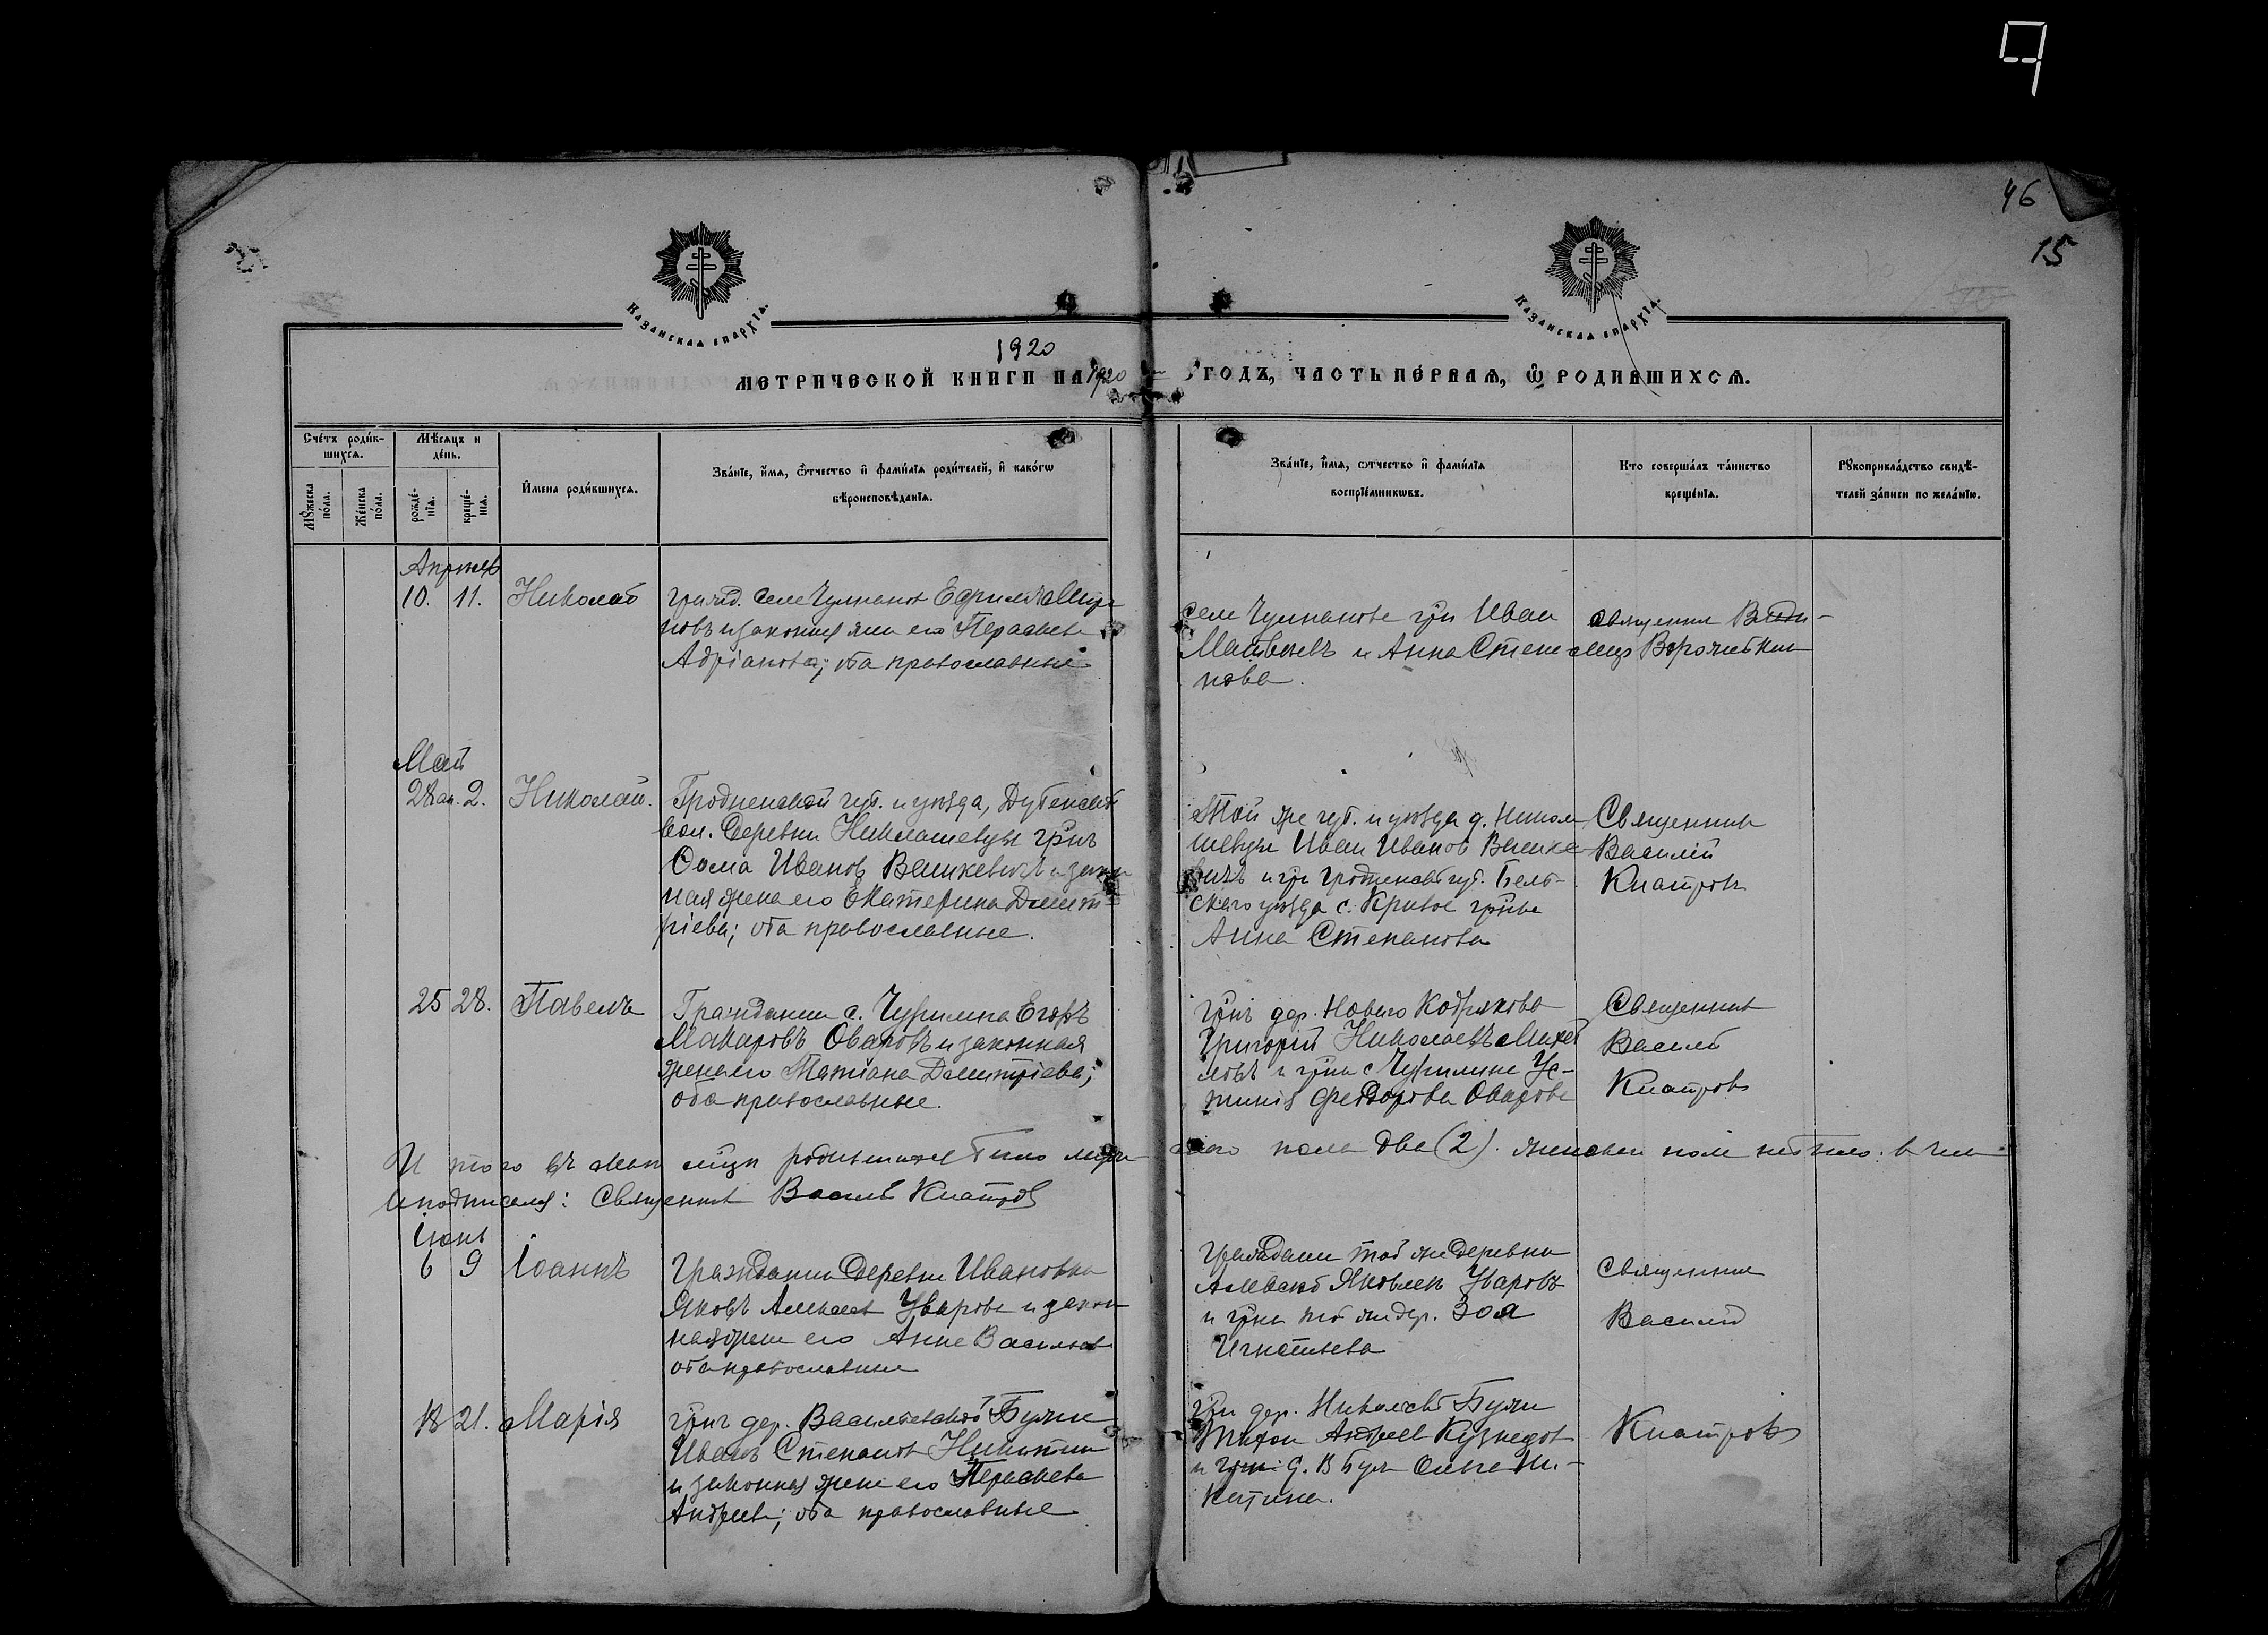 46
15
Казанская епархїа.
Казанская епархїа.
1920
МЕТРИЧЕСКОЙ КНИГИ НА 1920 ГОДЪ, ЧАСТЬ ПЕ́РВАЯ, Ѡ РОДИВШИХСѦ.
Сче́тъ роди́вшихся.
Мѣ́сяцъ и де́нь.
Мꙋ́жеска по́ла.
Же́нска по́ла.
рожде́нїя.
креще́нїя.
И́мена роди́вшихся.
Зва́нїе, и́мя, ѻ́тчество и҆ фами́лїя роди́телей, и҆ како́гѡ вѣроисповѣ́данїя.
Зва́нїе, и́мя, ѻ́тчество и҆ фами́лїя воспрїе́мниковъ.
Кто соверша́лъ та́инство креще́нїя.
Рꙋкоприкла́дство свидѣ́телей за́писи по жела́нїю.
Апрѣль
10. 11. Николай
гражд. села Чулпанова Ефрем
новъ и законная жена его Параскева
Адріанова; оба православные
села Чулпанова гр-н Иван
Матвеевъ и Анна Степа
нова.
священник Влади-
мир
Май
28 ап. 2. Николай.
Гродненской губ. и уѣзда, Дубенской
вол. деревни Николаевцы гр-нъ
Ѳома Иванов Вашкевичъ и закон
ная жена его Екатерина Димит
ріева; оба православные.
Той же губ. и уѣзда д. Никола
евцы Иван Иванов Вашке
вичъ и гр. Гродненской губ. Бель-
скаго уѣзда с. Кривое гр-нка
Анна Степанова
Священник
Василій
Киатров
25 28. Павелъ
Гражданин с. Чурилина Егоръ
Макаровъ Оваровъ и законная
жена его Татіана Димитріева;
оба православные.
гр-нъ дер. Новаго Кадрякова
Григорій Николаевъ Михай
ловъ и гр-ка с. Чурилина Ус-
тинія Феодорова Оварова
Священник
Василій
Киатров
Итого въ мае мѣсяце родившихся было мужескаго пола два (2). женскаго пола не было. в чем
и подписался: Священник Василій Киатров
Іюнь
6 9 Іоаннъ
Гражданин деревни Ивановки
Яковъ Алексеев Уваровъ и закон
ная жена его Анна Васильева
оба православные
Гражданин той же деревни
Алексей Яковлев Уваровъ
и гр-ка той же дер. Зоя
Игнатьева
Священник
Василий
18 21. Марія
гр-нъ дер. Васильевской Буляк
Иванъ Степанов Никитин
и законная жена его Параскева
Андреева; оба православные
гр-н дер. Никольской Буляк
Тихон Андреев Кузнецов
и гр-ка д. В Буляк Ольга Ни-
китина.
Киатров